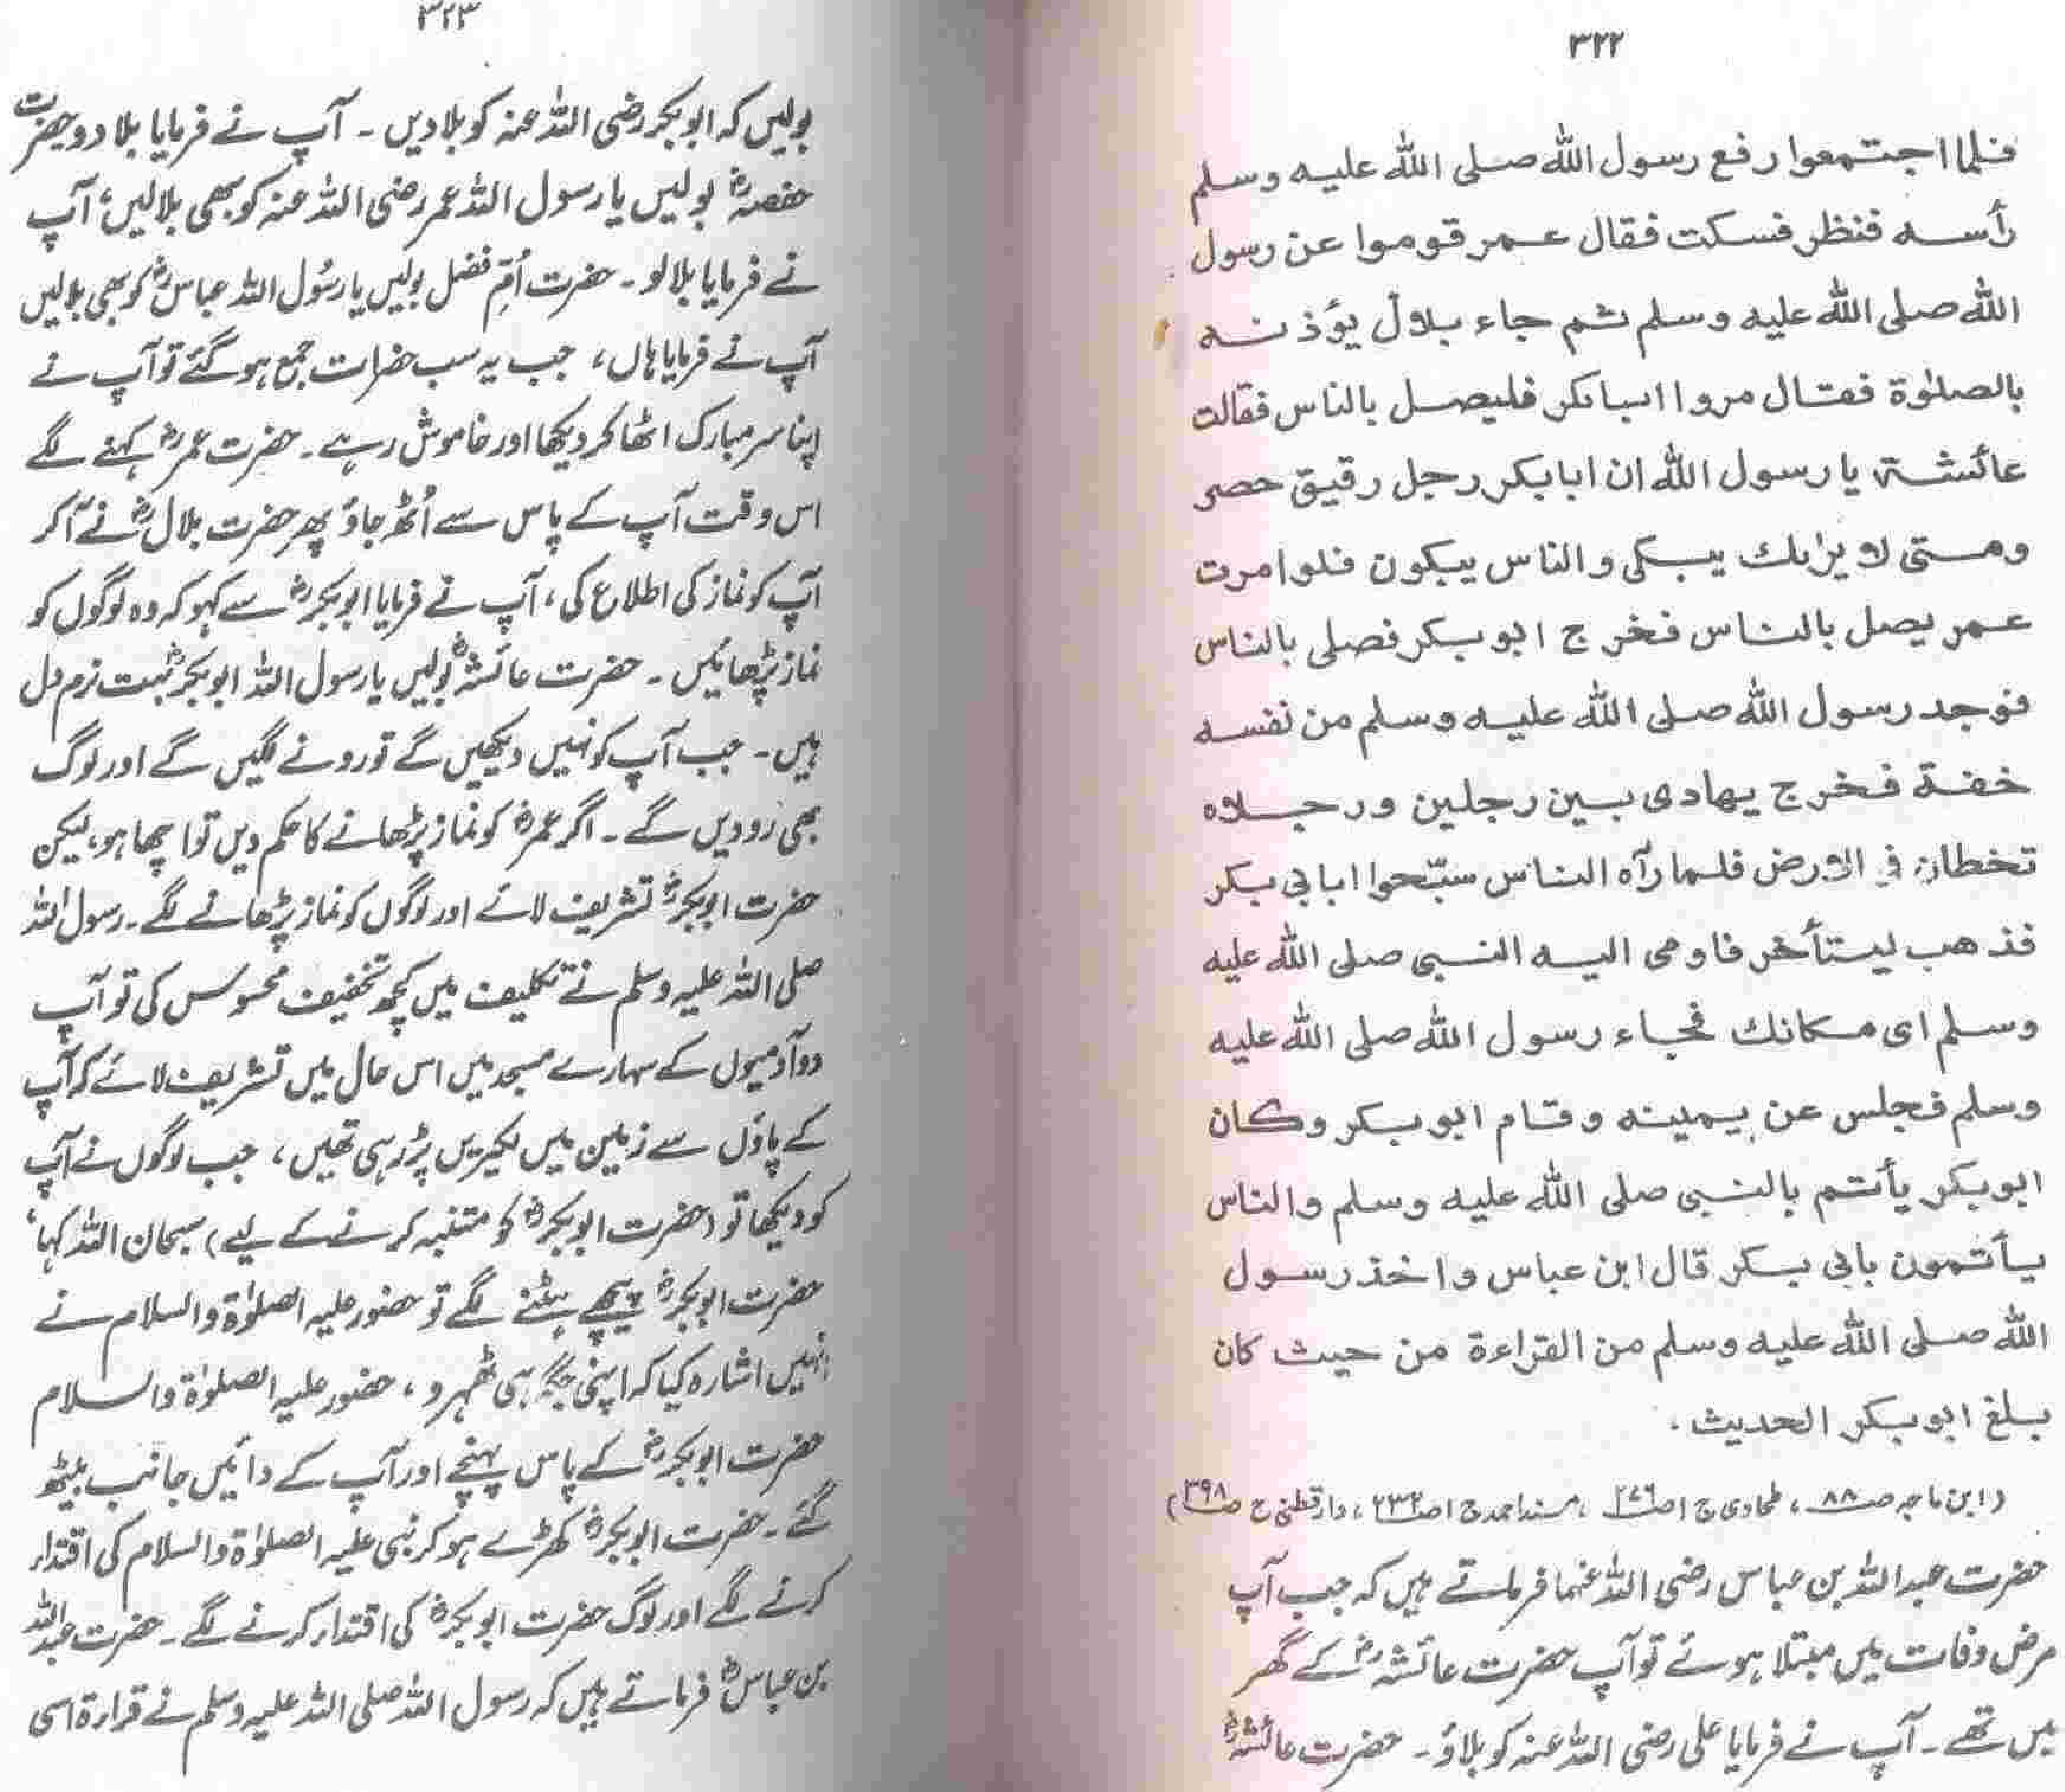 ۳۲۲
فلما اجتمعوا رفع رسول الله صلى الله عليه وسلم
رأسه فنظر فسكت فقال عمر قوموا عن رسول
الله صلى الله عليه وسلم ثم جاء بلال يؤذنه
بالصلوٰة فقال مروا ابابكر فليصل بالناس فقالت
عائشة يا رسول الله ان ابابكر رجل رقيق حصر
ومتى لا يراك يبكى والناس يبكون فلو امرت
عمر يصل بالناس فخرج ابوبكر فصلى بالناس
فوجد رسول الله صلى الله عليه وسلم من نفسه
خفة فخرج يهادى بين رجلين ورجلاه
تخطان في الارض فلما رآه الناس سبّحوا ابابي بكر
فذهب ليستأخر فاومى اليه النبى صلى الله عليه
وسلم اى مكانك فجاء رسول الله صلى الله عليه
وسلم فجلس عن يمينه وقام ابوبكر وكان
ابوبكر يأتم بالنبى صلى الله عليه وسلم والناس
يأتمون بابى بكر قال ابن عباس واخذ رسول
الله صلى الله عليه وسلم من القراءة من حيث كان
بلغ ابوبكر الحديث۔
(ابن ماجہ صـ۸۸، طحاوی ج۱ صـ۲۷۶، مسند احمد ج۱ صـ۲۳۲، دارقطنی ج صـ۳۹۸)
حضرت عبداللہ بن عباس رضی اللہ عنہما فرماتے ہیں کہ جب آپ
مرض وفات میں مبتلا ہوئے تو آپ حضرت عائشہؓ کے گھر
میں تھے۔ آپ نے فرمایا علی رضی اللہ عنہ کو بلاؤ۔ حضرت عائشہؓ
۳۲۳
بولیں کہ ابوبکر رضی اللہ عنہ کو بلا دیں۔ آپ نے فرمایا بلا دو حضرت
حفصہؓ بولیں یا رسول اللہ عمر رضی اللہ عنہ کو بھی بلا لیں، آپ
نے فرمایا بلا لو۔ حضرت اُمّ فضل بولیں یا رسُول اللہ عباسؓ کو بھی بلا لیں
آپ نے فرمایا ہاں، جب یہ سب حضرات جمع ہو گئے تو آپ نے
اپنا سر مبارک اٹھا کر دیکھا اور خاموش رہے۔ حضرت عمرؓ کہنے لگے
اس وقت آپ کے پاس سے اُٹھ جاؤ پھر حضرت بلالؓ نے آ کر
آپ کو نماز کی اطلاع کی، آپ نے فرمایا ابوبکرؓ سے کہو کہ وہ لوگوں کو
نماز پڑھائیں۔ حضرت عائشہؓ بولیں یا رسول اللہ ابوبکرؓ بہت نرم دل
ہیں۔ جب آپ کو نہیں دیکھیں گے تو رونے لگیں گے اور لوگ
بھی رو دیں گے۔ اگر عمرؓ کو نماز پڑھانے کا حکم دیں تو اچھا ہو، لیکن
حضرت ابوبکرؓ تشریف لائے اور لوگوں کو نماز پڑھانے لگے۔ رسول اللہ
صلی اللہ علیہ وسلم نے تکلیف میں کچھ تخفیف محسوس کی تو آپ
دو آدمیوں کے سہارے مسجد میں اس حال میں تشریف لائے کہ آپ
کے پاؤں سے زمین میں لکیریں پڑ رہی تھیں، جب لوگوں نے آپ
کو دیکھا تو (حضرت ابوبکرؓ کو متنبہ کرنے کے لیے) سبحان اللہ کہا،
حضرت ابوبکرؓ پیچھے ہٹنے لگے تو حضور علیہ الصلوٰۃ والسلام نے
انہیں اشارہ کیا کہ اپنی جگہ ہی ٹھہرو، حضور علیہ الصلوٰۃ والسلام
حضرت ابوبکرؓ کے پاس پہنچے اور آپ کے دائیں جانب بیٹھ
گئے۔ حضرت ابوبکرؓ کھڑے ہو کر نبی علیہ الصلوٰۃ والسلام کی اقتداء
کرنے لگے اور لوگ حضرت ابوبکرؓ کی اقتداء کرنے لگے۔ حضرت عبداللہ
بن عباسؓ فرماتے ہیں کہ رسول اللہ صلی اللہ علیہ وسلم نے قراءۃ اسی